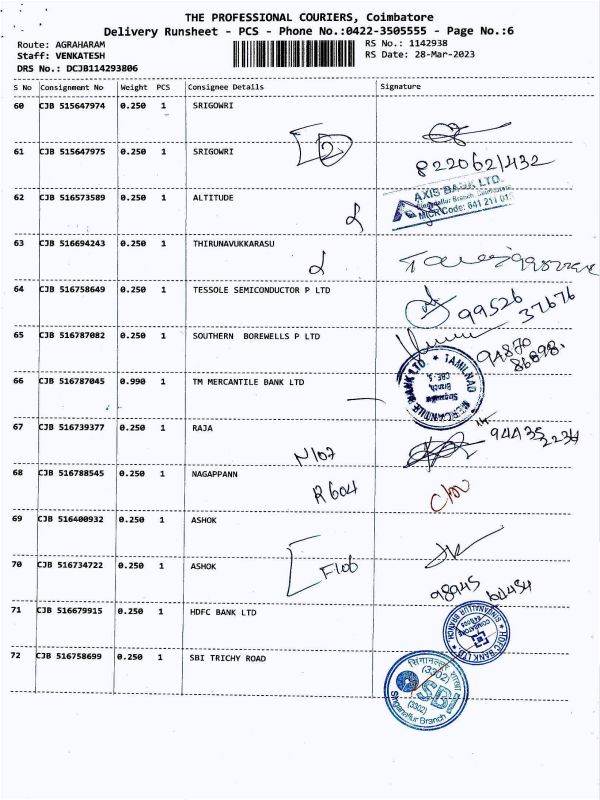 THE PROFESSIONAL COURIERS, Coimbatore
Delivery Runsheet - PCS - Phone No.:0422-3505555 - Page No.:6
Route: AGRAHARAM RS No.: 1142938
Staff: VENKATESH RS Date: 28-Mar-2023
DRS No.: DCJB114293806
S No Consignment No Weight PCS Consignee Details Signature
60 CJB 515647974 0.250 1 SRIGOWRI
2
61 CJB 515647975 0.250 1 SRIGOWRI 8220621432
62 CJB 516573589 0.250 1 ALTITUDE AXIS BANK LTD.
Singanallur Branch, Coimbatore
MICR Code: 641 211 013
63 CJB 516694243 0.250 1 THIRUNAVUKKARASU
64 CJB 516758649 0.250 1 TESSOLE SEMICONDUCTOR P LTD 99526
37676
65 CJB 516787082 0.250 1 SOUTHERN BOREWELLS P LTD 94870
86898.
66 CJB 516787045 0.990 1 TM MERCANTILE BANK LTD TAMILNAD MERCANTILE BANK LTD. Singanallur Branch, CBE-5.
67 CJB 516739377 0.250 1 RAJA 94435
2234
N107
68 CJB 516788545 0.250 1 NAGAPPANN R604
69 CJB 516400932 0.250 1 ASHOK
70 CJB 516734722 0.250 1 ASHOK F106
98945
71 CJB 516679915 0.250 1 HDFC BANK LTD HDFC BANK LTD SINGANALLUR BRANCH
72 CJB 516758699 0.250 1 SBI TRICHY ROAD सिंगानल्लूर शाखा
(3302)
SBI
(3302)
Singanallur Branch